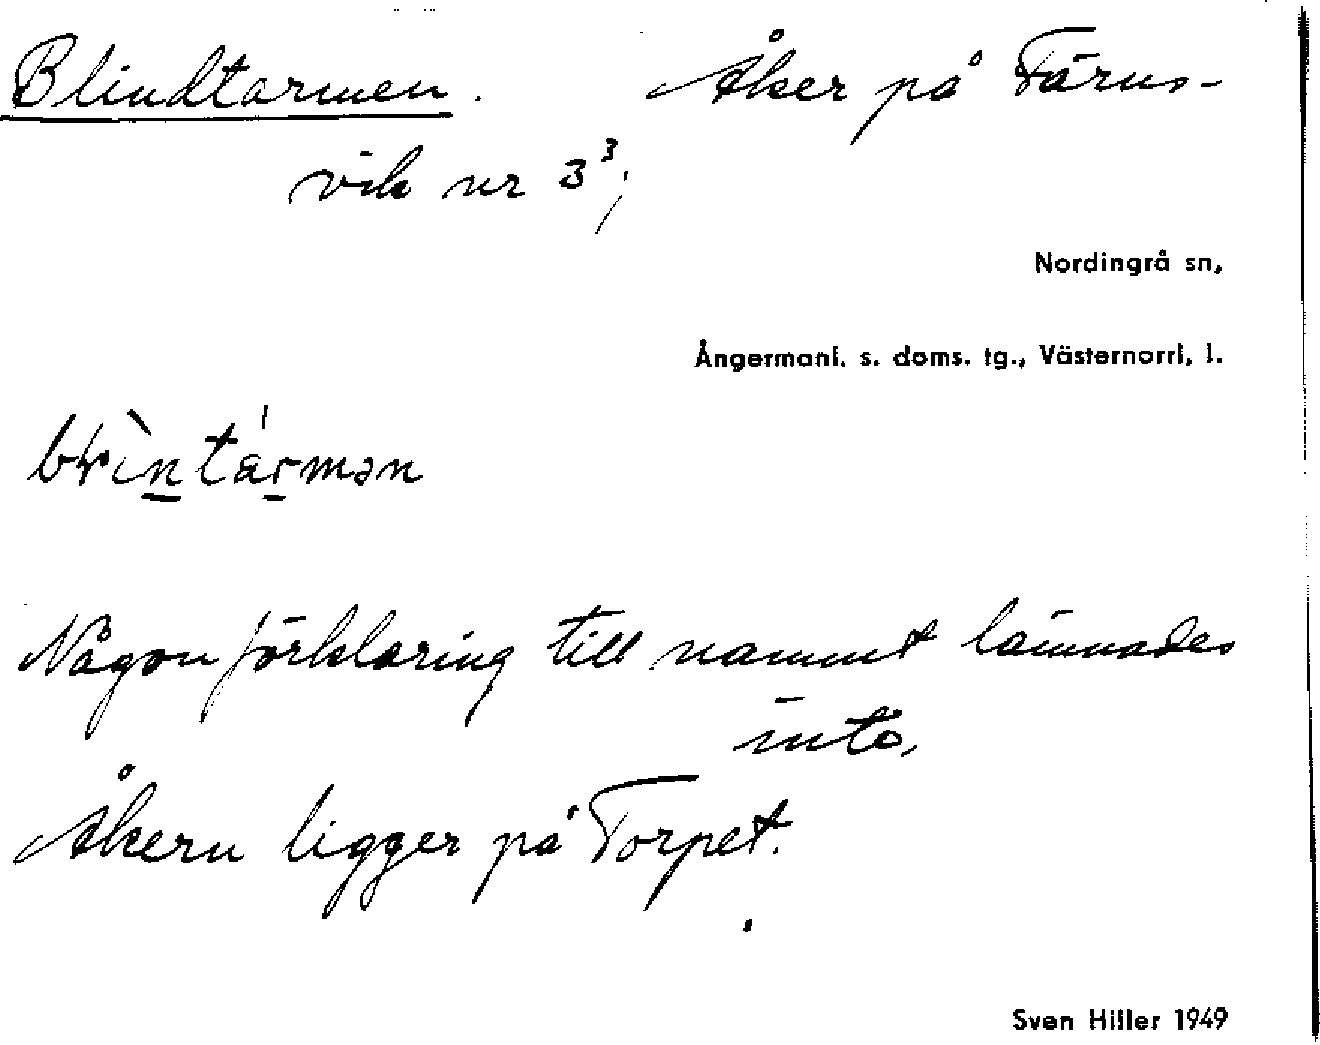 Blindtarmen. Åker på Färns-
vik nr 3³;
Nordingrå sn,
Ångermanl. s. doms. tg., Västernorrl. l.
Någon förklaring till namnet lämnades
inte.
Åkern ligger på Torpet.
Sven Hiller 1949